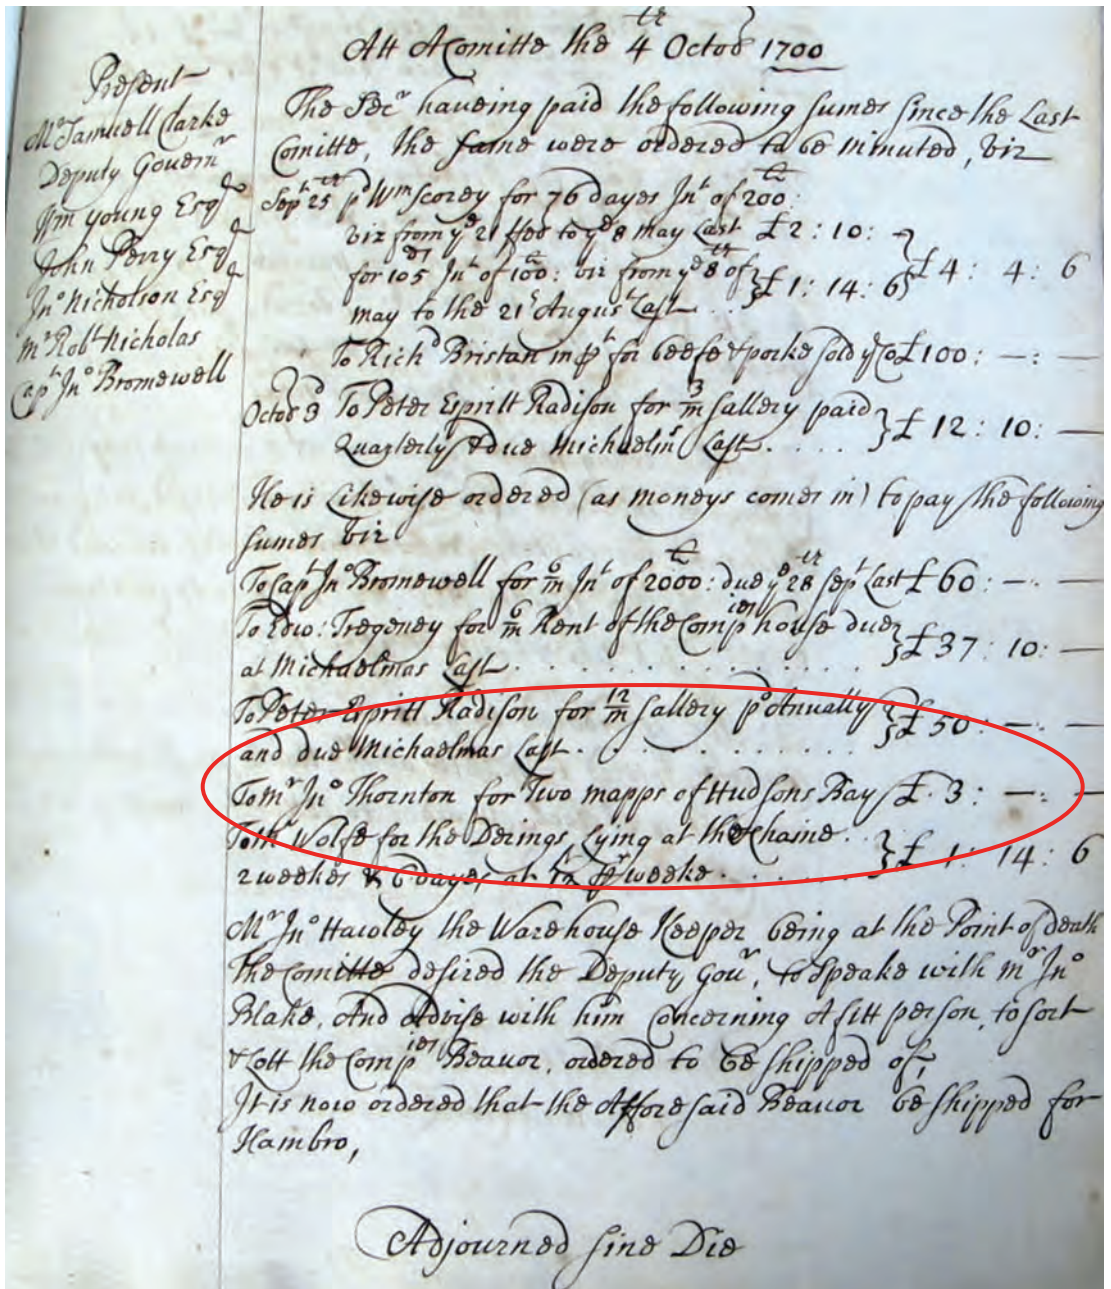 Att A Comitte the 4th Octobr 1700
Present
Mr Samuell Clarke
Deputy Governr
Wm Young Esqr
John Perry Esqr
Jno Nicholson Esqr
Mr Robt Nicholas
Capt Jno Bromewell
The Secr haveing paid the following sumes since the Last
Comitte, the same were ordered to be minuted, viz
Sept 25th pd Wm Scorey for 76 dayes Int of 200li:
viz from ye 21 Feb to ye 8 may Last £2 : 10: –
for 105 dys Int of 100li: viz from ye 8th of £1 : 14: 6 £4 : 4 : 6
may to the 21t August Last ...
To Richd Bristan in pt for beefe & porke sold ye Co £100 : — : —
Octobr 3d To Peter Espritt Radison for 3/m sallery paid
Quarterly & due Michaelms Last . . . . £ 12 : 10 : —
He is Likewise ordered (as moneys comes in) to pay the following
sumes viz
To Capt Jno Bromewell for 6/m Int of 2000li: due ye 28th Sept Last £ 60 : — : —
To Edw: Tregeney for 6/m Rent of the Compies house due
at Michaelmas Last . . . . . . . . . . . . £ 37 : 10 : —
To Peter Espritt Radison for 12/m sallery pd Anually £ 50 : — : —
and due Michaelmas Last . . . . . . . . . .
To Mr Jno Thornton for Two mapps of Hudsons Bay £ . 3 : — : —
To Wolfe for the Derings Lying at the Chaine . .
2 weekes & 6 dayes at 12s pr weeke . . . . . . £ 1 : 14 : 6
Mr Jno Hawley the Warehouse Keeper being at the Point of death
The Comitte desired the Deputy Govr, to Speake with mr Jno
Blake, And Advise with him Concerning A fitt person, to sort
& Lott the Compies Beavor, ordered to be shipped of,
It is now ordered that the Afforesaid Beavor be shipped for
Hambro,
Adjourned Sine Die